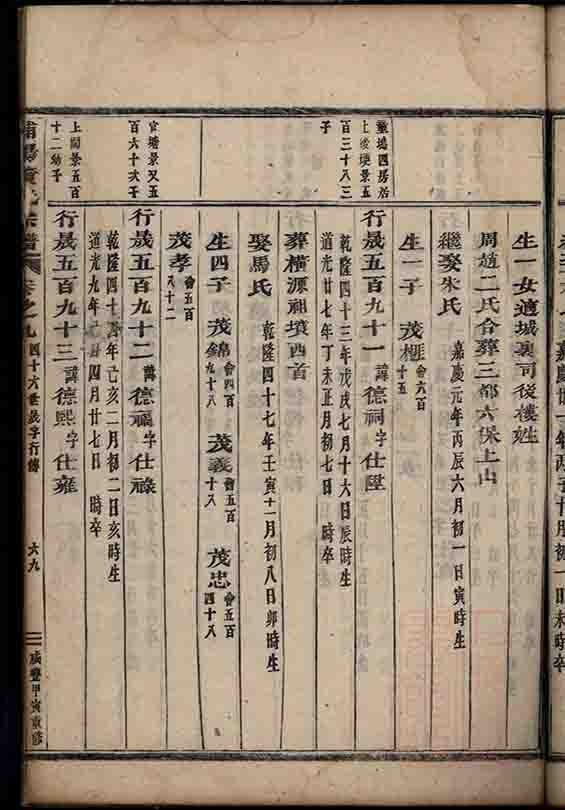 生一女適城裏司後樓姓
周趙二氏合葬三都六保上山
繼娶朱氏
嘉慶元年丙辰六月初一日寅時生
生一子 茂榧 會六百
十五
叢塢四房治
上後堘景五
百三十八三
子
行晟五百九十一 諱德祠字仕陞
乾隆四十三年戊戌七月十六日辰時生
道光廿七年丁未正月初七日 時卒
葬橫源祖墳西首
娶馬氏
乾隆四十七年壬寅十一月初八日卯時生
生四子 茂錦 會四百
九十八
茂義 會五百
十八
茂忠 會五百
四十八
茂孝 會五百
八十二
官塘景又五
百六十六子
行晟五百九十二 諱德福字仕祿
乾隆四十四年己亥二月初二日亥時生
道光九年己丑四月廿七日 時卒
上閣景五百
十二幼子
行晟五百九十三 諱德熙字仕雍
宗譜 卷之九 四十六世晟字行傳 六九 咸豐甲寅重修